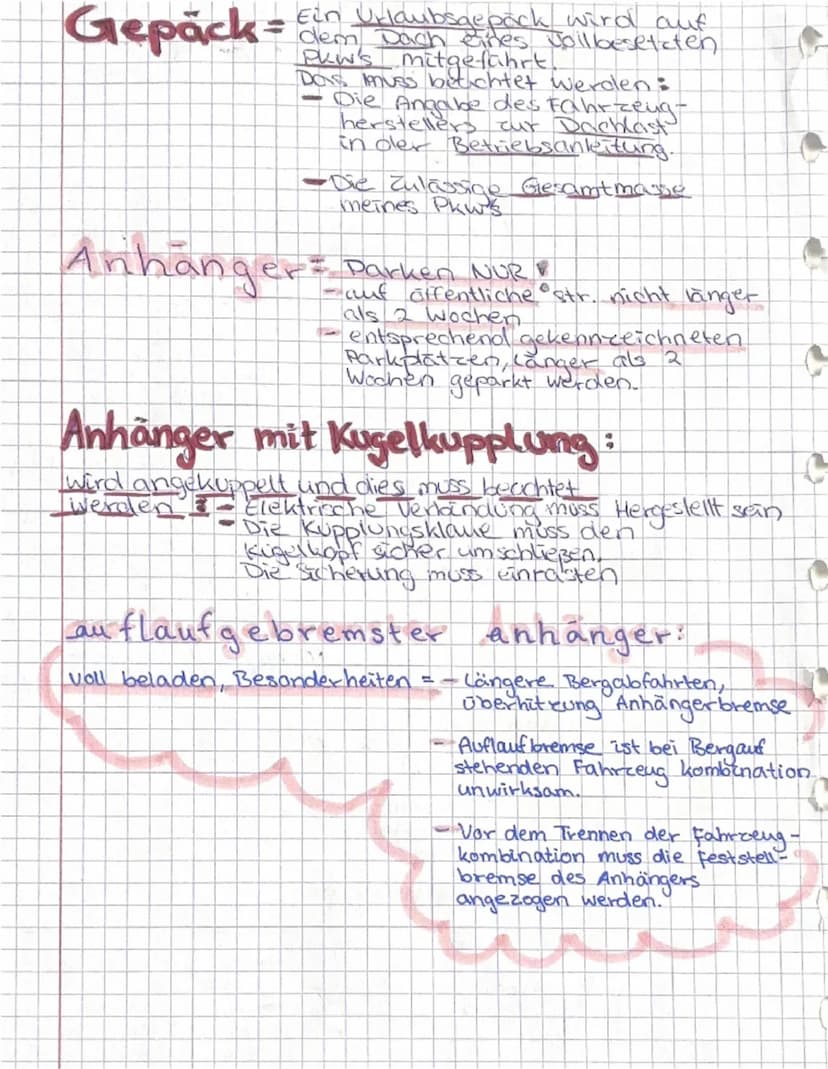 Gepäck = Ein Urlaubsgepäck wird auf
dem Dach eines vollbesetzten
PKW's mitgeführt.
Das muss beachtet werden:
- Die Angabe des Fahrzeug-
herstellers zur Dachlast
in der Betriebsanleitung.
- Die zulässige Gesamtmasse
meines PKW's
Anhänger = Parken NUR!
- auf öffentliche Str. nicht länger
als 2 Wochen
- entsprechend gekennzeichneten
Parkplätzen, länger als 2
Wochen geparkt werden.
Anhänger mit Kugelkupplung:
wird angekuppelt und dies muss beachtet
werden: - Elektrische Verbindung muss Hergestellt sein
- Die Kupplungsklaue muss den
Kugelkopf sicher umschließen.
Die Sicherung muss einrasten
auflaufgebremster anhänger:
voll beladen, Besonderheiten = - Längere Bergabfahrten,
überhitzung Anhängerbremse
- Auflaufbremse ist bei Bergauf
stehenden Fahrzeug kombination
unwirksam.
- Vor dem Trennen der Fahrzeug-
kombination muss die feststell-
bremse des Anhängers
angezogen werden.